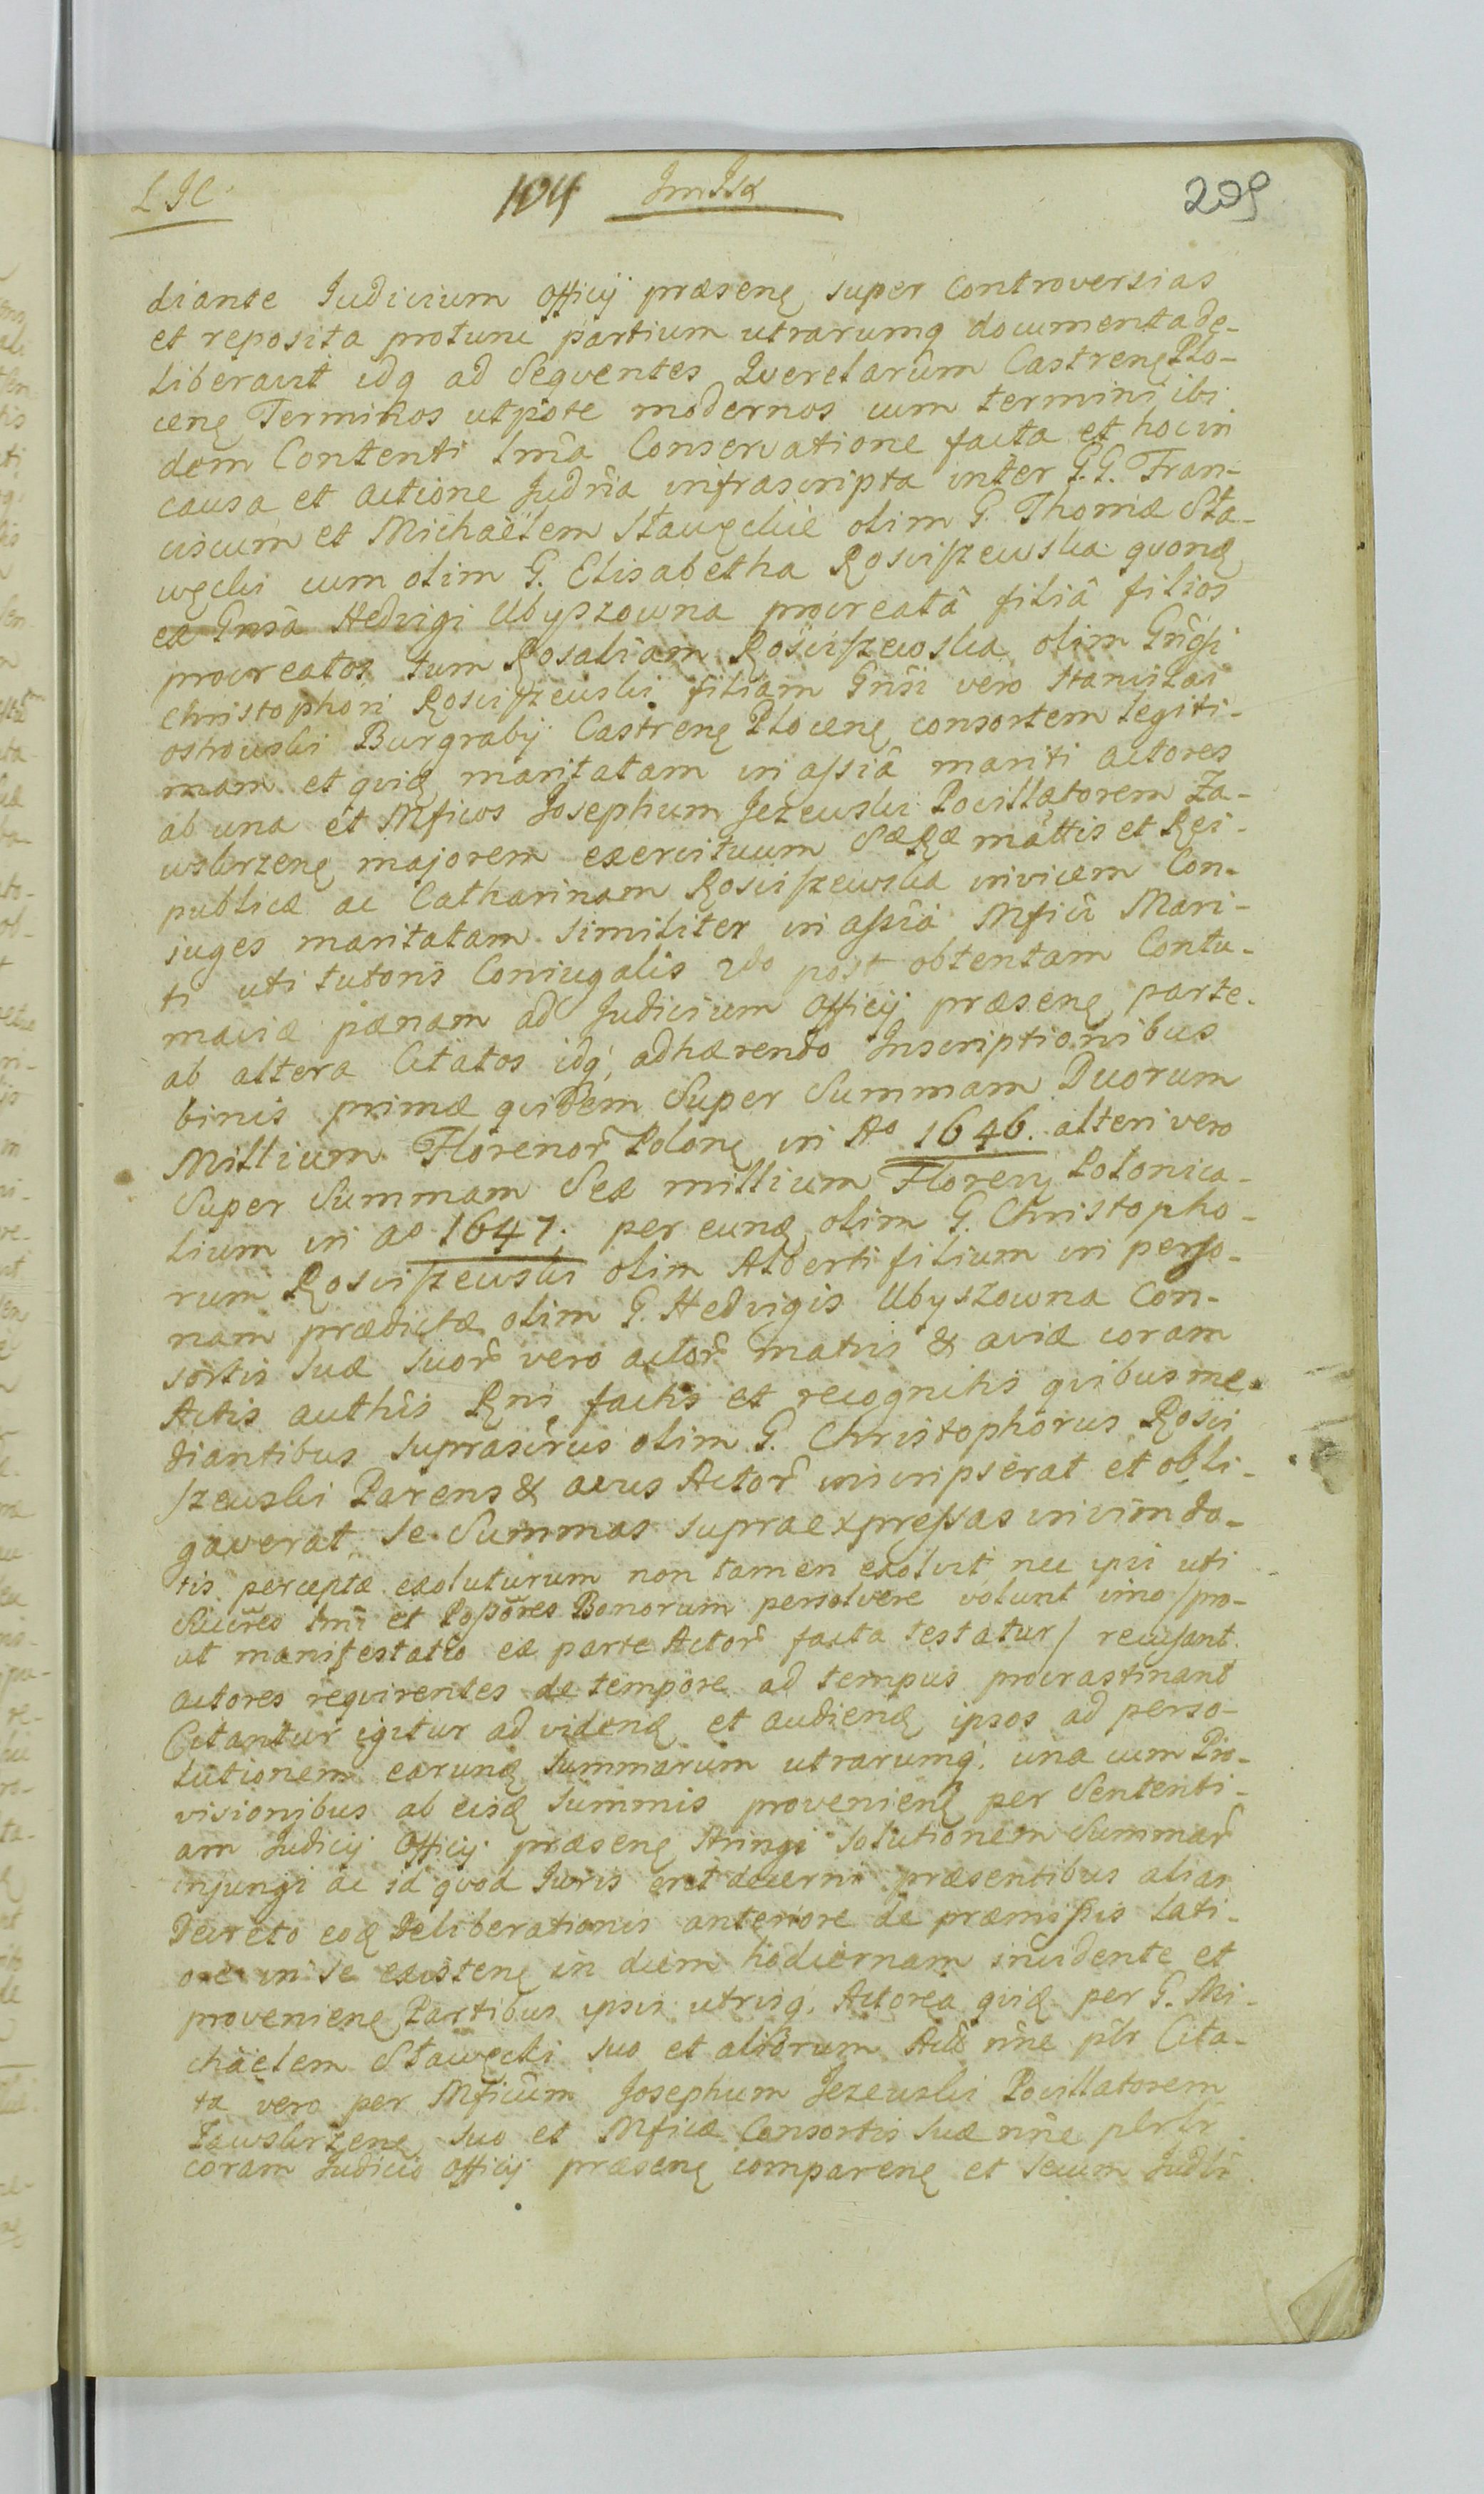 209
diante Judicium Officij præsenę super Controversias
et reposita protunc partium utrarumq documenta de-
liberavit idq ad Seqventes Qverelarum Castrenę Plo-
cenę Terminos utpote modernos cum termini ibi
dem Contenti lmã Conservatione facta et hoc in
causa et actione Judria infrascripta inter G.G. Fran-
ciscum et Michaëlem Stawęckie olim G. Thomæ Sta-
węcki cum olim G. Elisabetha Rosciszewska qvonę
ex Gnsã Hedvigi Ubyszowna procreatâ filiâ filios
procreatos tum Rosaliam Rosciszewska olim Gñsi
Christophori Rosciszewski filiam Gnsi vero Stanislai
ostrowski Burgrabij Castrenę Plocenę consortem legiti-
mam et qvię maritatam in assiâ mariti actores
ab una et Mficos Josephum Jezewski Pocillatorem Za-
wskrzenę majorem exercituum SæRæ mãttis et Rei-
publicæ ac Catharinam Rosciszewska invicem Con-
juges maritatam similiter in assiã Mfici Mari-
ti uti tutoris Coniugalis 2do post obtentam Contu-
maciæ pænam ad Judicium Officij præsenę parte
ab altera Citatos idq, adhærendo Inscriptionibus
binis primæ qvidem Super Summam Duorum
Millium Florenor Polonę in Ao 1646. alteri vero
Super Summam Sex millium Florenj Polonica-
lium in ao 1647. per eunę olim G. Christopho-
rum Rosciszewski olim Alberti filium in perso-
nam prædictæ olim G. Hedvigis Ubyszowna Con-
sortis suæ suor vero actor matris & aviæ coram
Actis authîs Rni factis et recognitis qvibus me-
diantibus suprascrus olim G. Christophorus Rosci
szewski Parens & avus Actor inscripserat et obli-
gaverat se Summas supraexpressas in vim do-
tis perceptæ exoluturum non tamen exolvit nec ipsi uti
Succres lmi et Possores Bonorum persolvere volunt imo /pro-
ut manifestatio ex parte Actor facta testatur/ recusant
actores reqvirentes de tempore ad tempus procrastinant
Citantur igitur ad videnę et audienę ipsos ad perso-
lutionem earunę summarum utrarumq. una cum Pro-
visionibus ab eisę summis provenienę per Sententi-
am Judicij Officij præsenę Stringi solutionem Summar
injungi ac id qvod Juris erit decerni præsentibus alias
Decreto eoę Deliberationis anteriore de præmissis lati-
ore in se existenę in diem hodiernam incidente et
provenienę Partibus ipsis utrisq. Actorea qvię per G. Mi-
chäelem Stawęcki suo et aliorum Act nñe plr Cita-
ta vero per Mficum Josephum Jezewski Pocillatorem
Zawskrzenę suo et Mficæ Consortis suæ nñe plr
coram Judicio Officij præsenę comparenę et secum Judlr